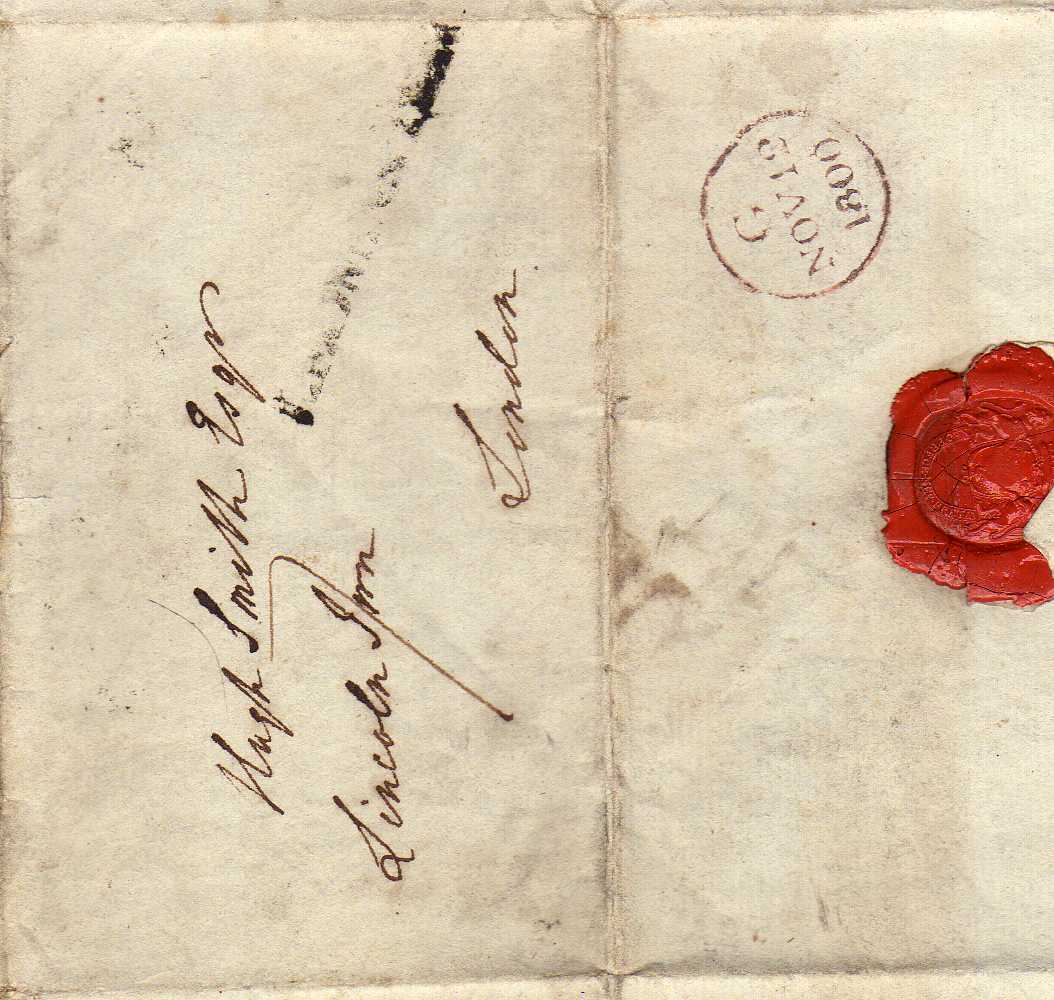 Hugh Smith Esqr
Lincoln Inn
London
C
NOV 13
1800